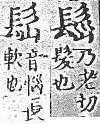 乃老切
髮也
音惱長
軟也